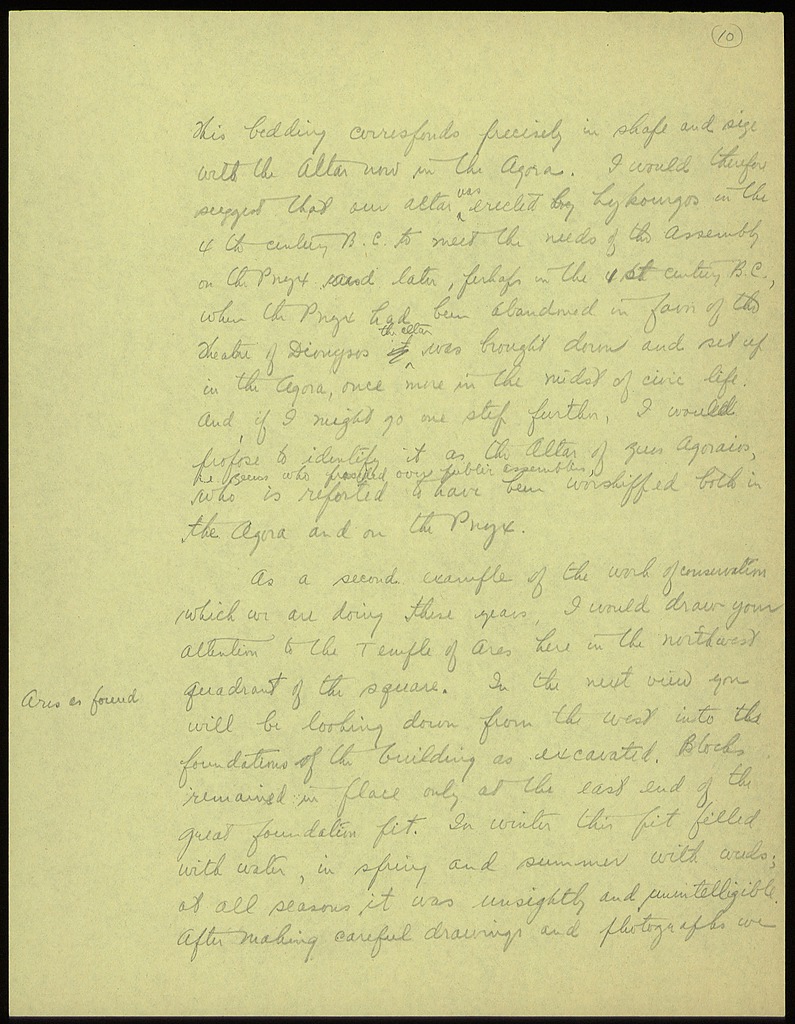 10
This bedding corresponds precisely in shape and size
with the Altar now in the Agora. I would therefore
suggest that our altar was erected by Lykourgos in the
4th century B.C. to meet the needs of the Assembly
on the Pnyx and later, perhaps in the 1st century B.C.,
when the Pnyx had been abandoned in favor of the
Theatre of Dionysos the altar was brought down and set up
in the Agora, once more in the midst of civic life.
And, if I might go one step further, I would
propose to identify it as the Altar of Zeus Agoraios,
he Zeus who presided over public assemblies,
who is reported to have been worshipped both in
the Agora and on the Pnyx.
As a second example of the work of conservation
which we are doing these years, I would draw your
attention to the Temple of Ares here in the northwest
Ares as found
quadrant of the square. In the next view you
will be looking down from the west into the
foundations of the building as excavated. Blocks
remained in place only at the east end of the
great foundation pit. In winter this pit filled
with water, in spring and summer with weeds;
at all seasons it was unsightly and unintelligible.
After making careful drawings and photographs we